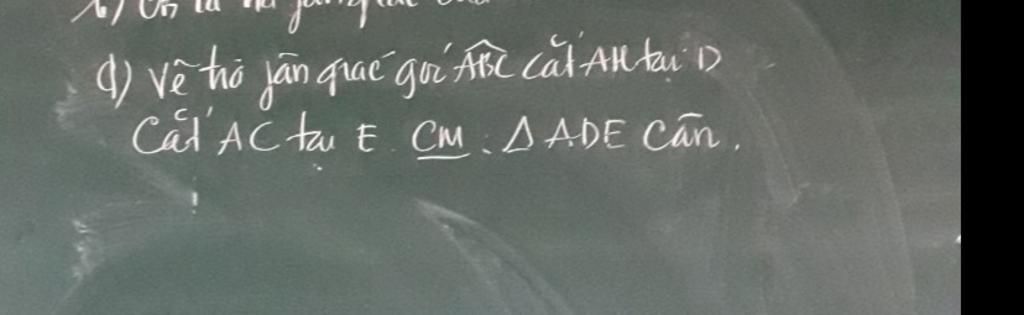 d) Vẽ tia fân giác góc ABC cắt AH tại D
Cắt AC tại E. CM: Δ ADE Cân.